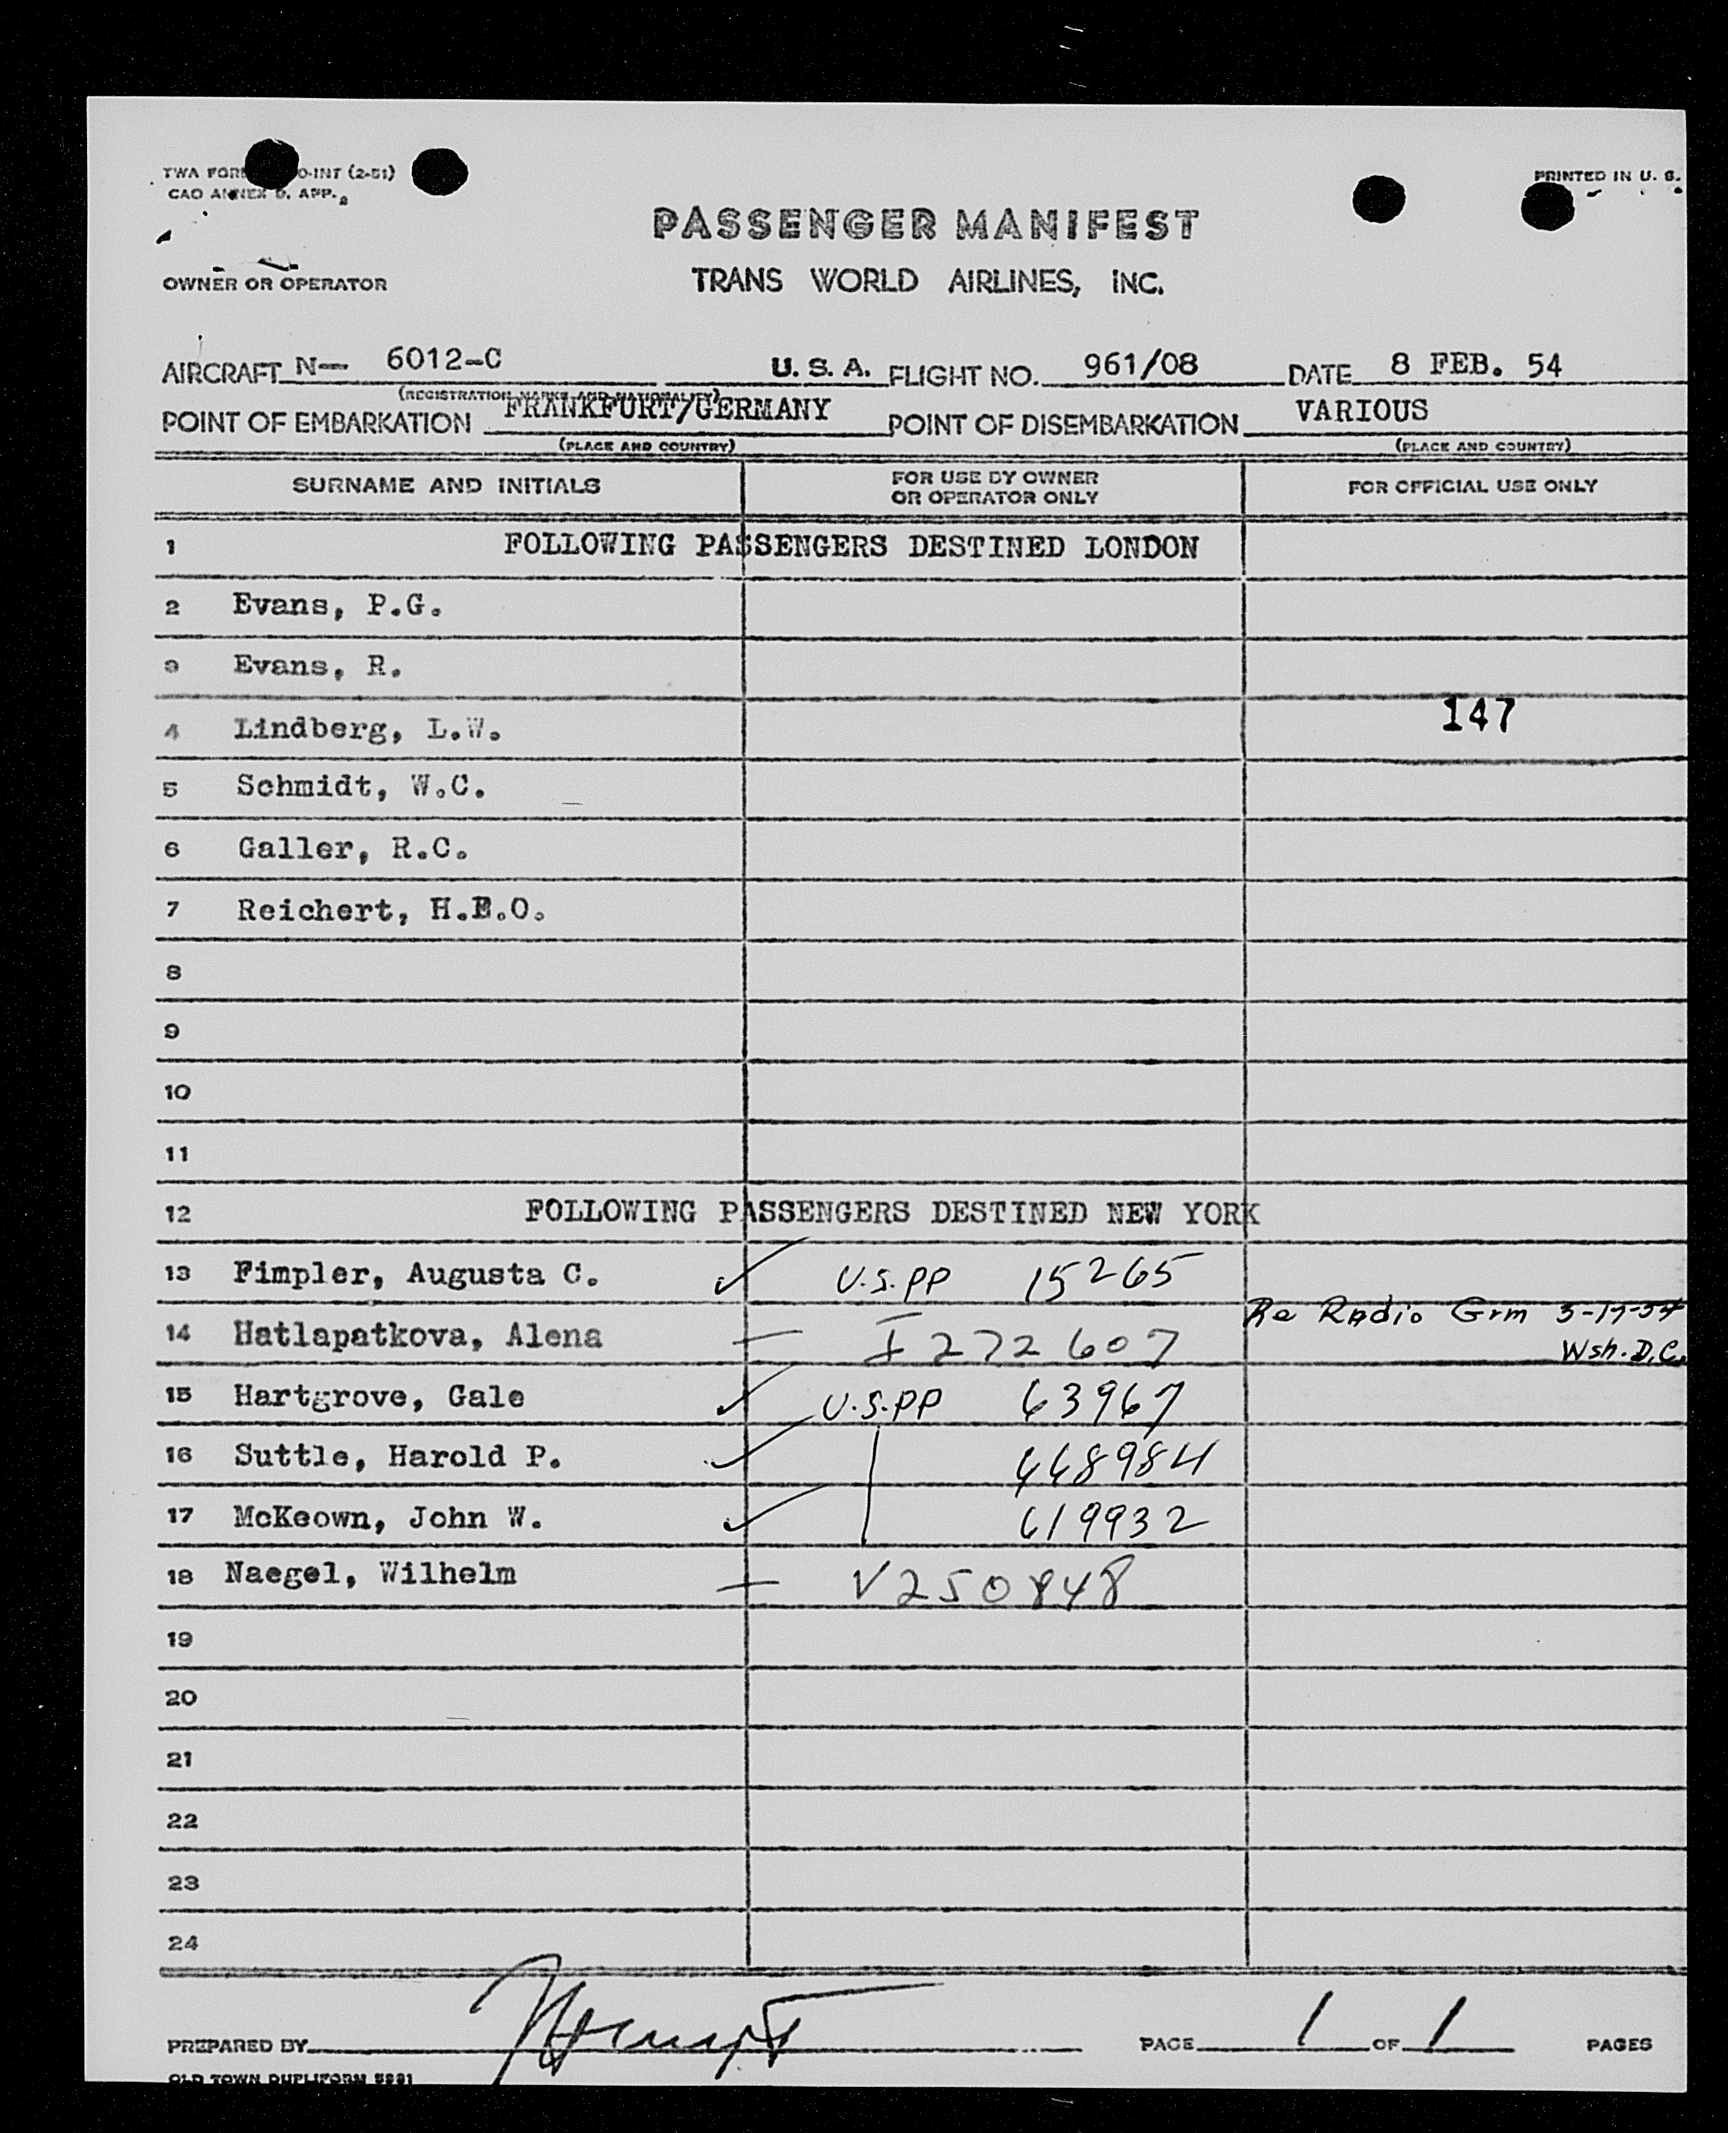 TWA FORM O-INT (2-51)
CAO ANNEX D. APP.
PRINTED IN U. S.
PASSENGER MANIFEST
OWNER OR OPERATOR
TRANS WORLD AIRLINES, INC.
AIRCRAFT N— 6012-C U. S. A. FLIGHT NO. 961/08 DATE 8 FEB. 54
(REGISTRATION MARKS AND NATIONALITY)
POINT OF EMBARKATION FRANKFURT/GERMANY POINT OF DISEMBARKATION VARIOUS
(PLACE AND COUNTRY) (PLACE AND COUNTRY)
SURNAME AND INITIALS FOR USE BY OWNER OR OPERATOR ONLY FOR OFFICIAL USE ONLY
1 FOLLOWING PASSENGERS DESTINED LONDON
2 Evans, P.G.
3 Evans, R.
4 Lindberg, L.W. 147
5 Schmidt, W.C.
6 Galler, R.C.
7 Reichert, H.E.O.
8
9
10
11
12 FOLLOWING PASSENGERS DESTINED NEW YORK
13 Fimpler, Augusta C. ✓ U.S.PP 15265
Re Radio Grm 3-17-54
14 Hatlapatkova, Alena — I 272607 Wsh. D.C.
15 Hartgrove, Gale ✓ U.S.PP 63967
16 Suttle, Harold P. ✓ 448984
17 McKeown, John W. ✓ 619932
18 Naegel, Wilhelm — V250848
19
20
21
22
23
24
PREPARED BY PAGE 1 OF 1 PAGES
OLD TOWN DUPLIFORM 5991